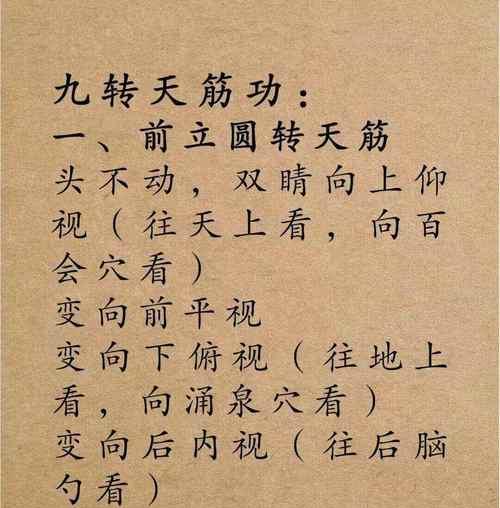 九转天筋功：
一、前立圆转天筋
头不动，双睛向上仰
视（往天上看，向百
会穴看）
变向前平视
变向下俯视（往地上
看，向涌泉穴看）
变向后内视（往后脑
勺看）